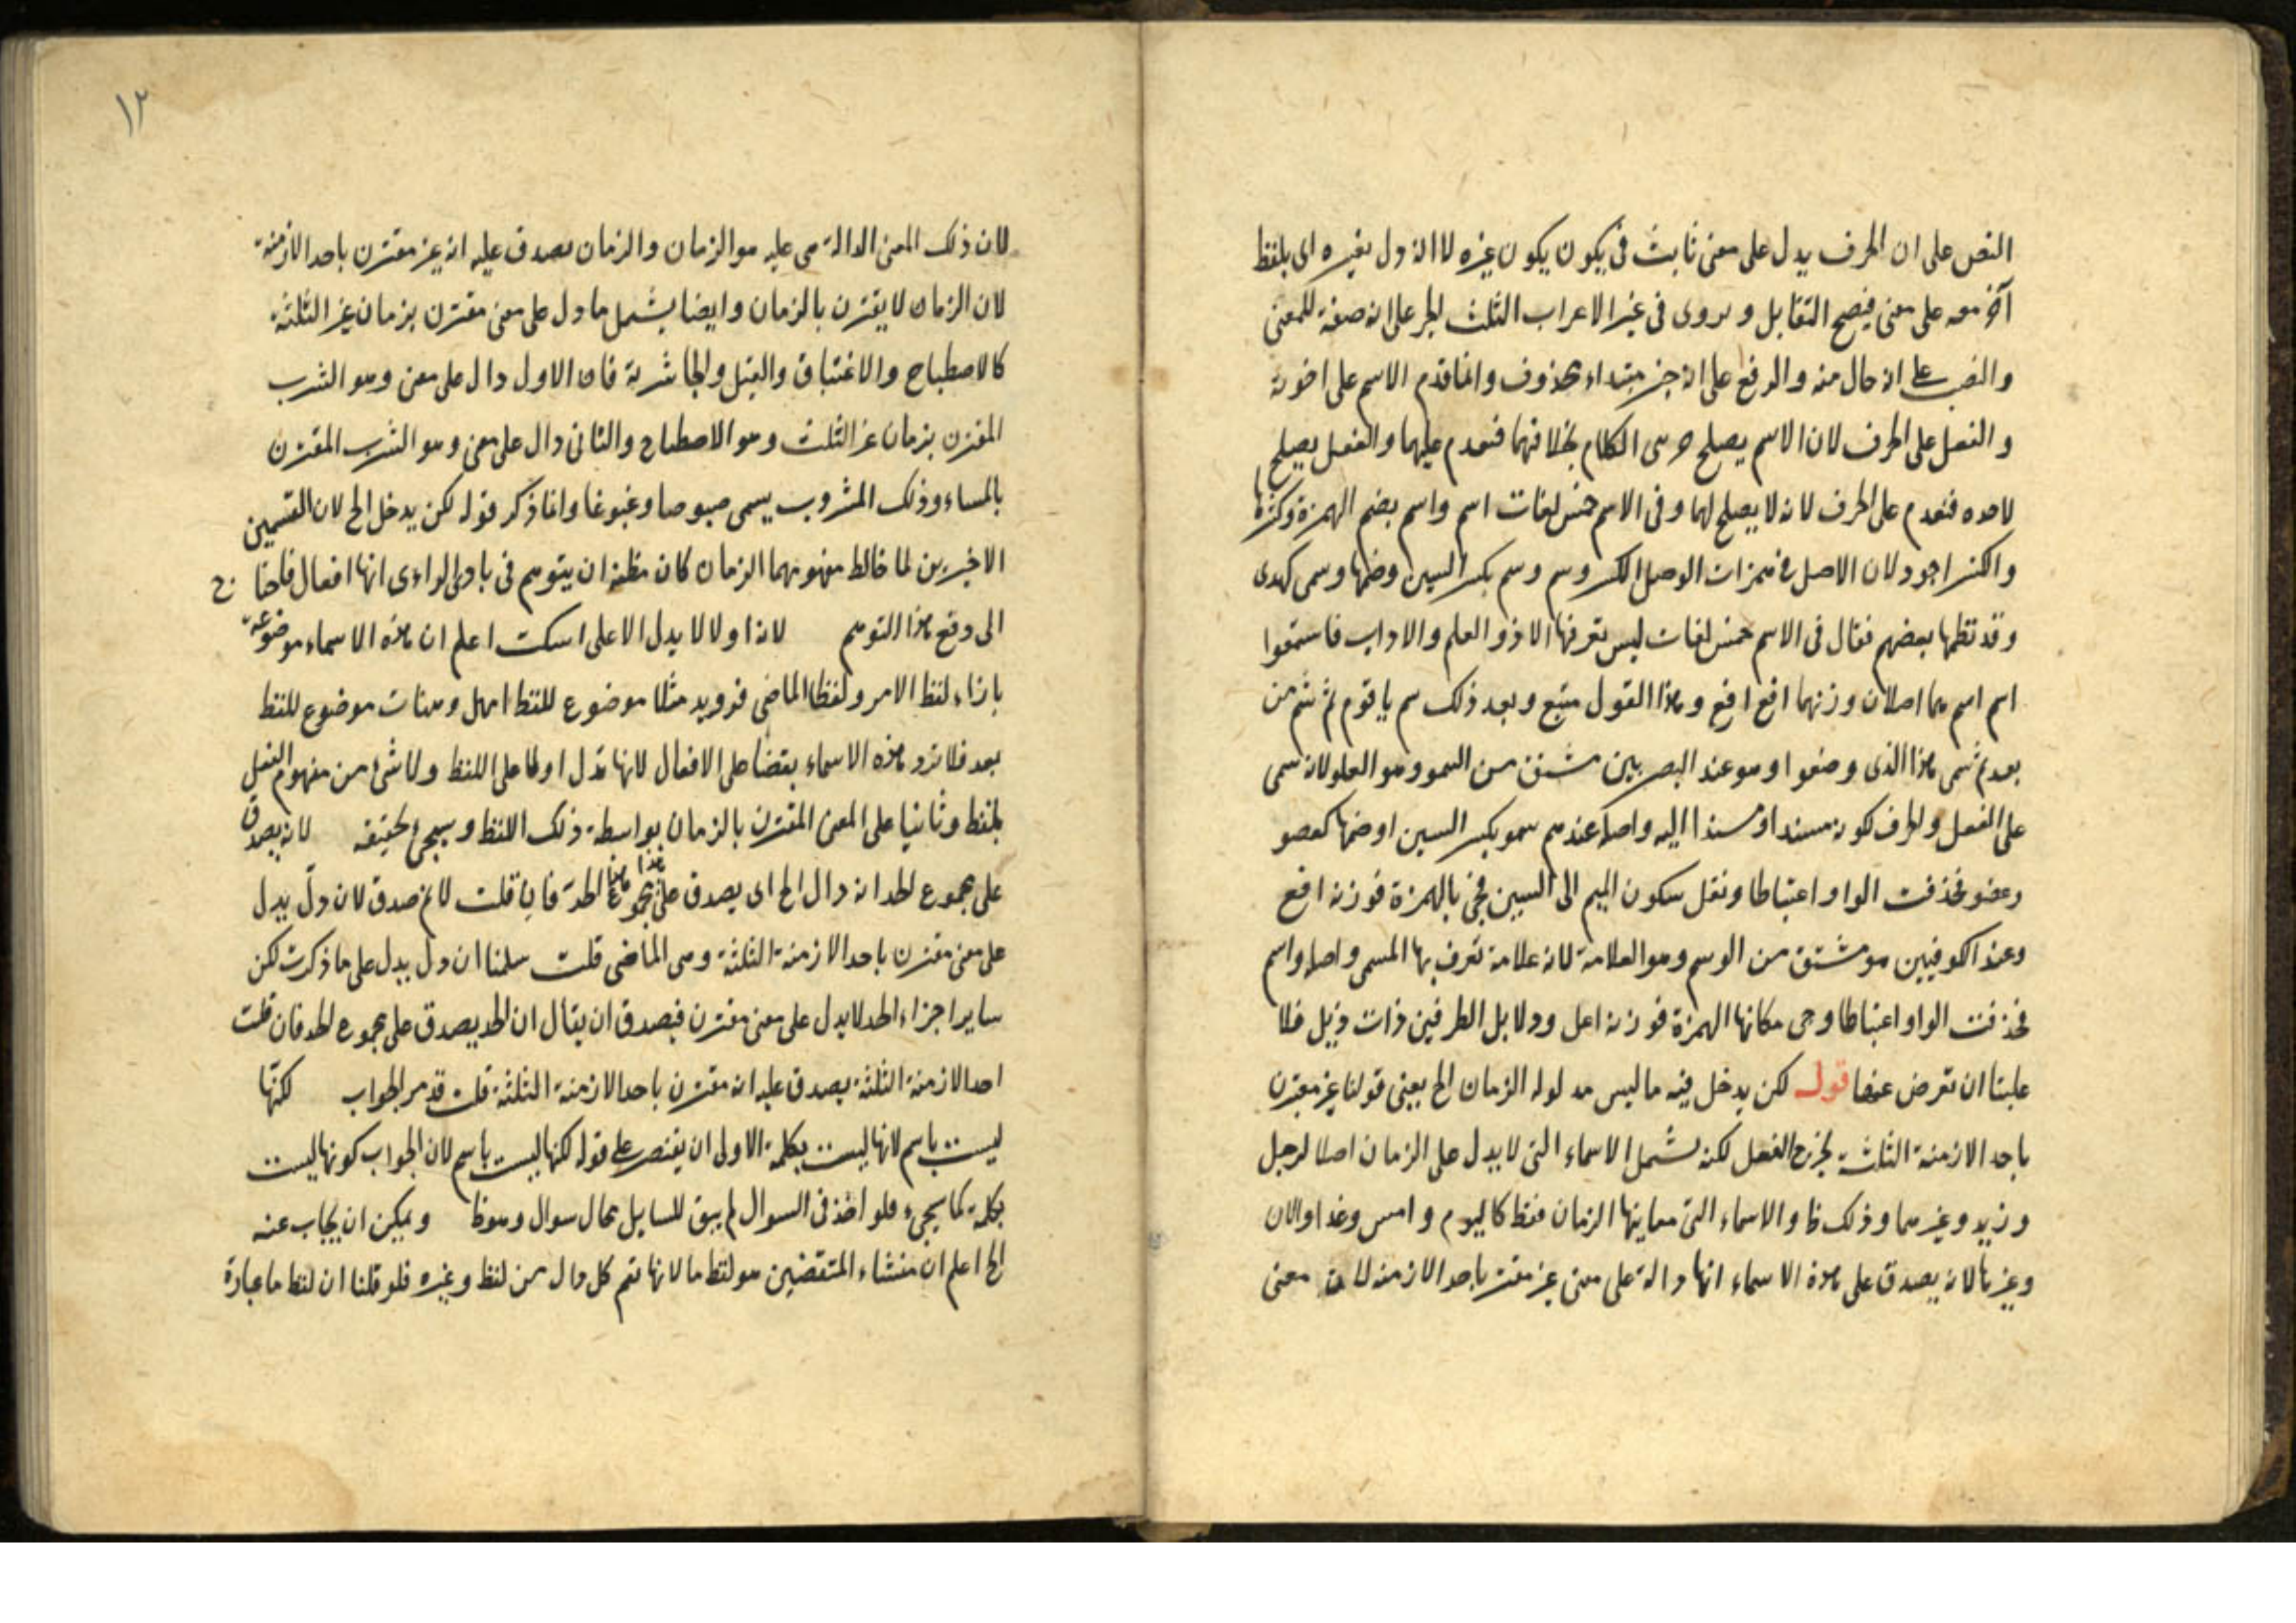 النص على ان الحرف يدل على معنى ثابت في يكون يكون غيره لا انه دل بغيره اى بلفظ
آخر معه على معنى فيصح التقابل ويروى في غير الاعراب الثلث الجر على انه صفة للمعنى
والنصب على انه حال منه والرفع على انه خبر مبتداء محذوف وانما قدم الاسم على اخوته
والفعل على الحرف لان الاسم يصلح الكلام بخلافهما فقدم عليهما والفعل يصلح
لاحده فقدم على الحرف لانه لا يصلح لها وفى الاسم خمس لغات اسم واسم بضم الهمزة وكسرها
والكسر اجود لان الاصل في همزات الوصل الكسر وسم وسم بكسر السين وضمها وسمى كهدى
وقد نظمها بعضهم فقال فى الاسم خمس لغات ليس تعرفها الا ذو العلم والاداب فاستمعوا
اسم اسم هما اصلان وزنهما افع افع وهذا القول متبع وبعد ذلك سم يا قوم ثم سم من
بعد ثم سمى هذا الذى وضعوا وهو عند البصريين مشتق من السمو وهو العلو لانه سمى
على الفعل والحرف لكونه مسندا ومسندا اليه واصله عندهم سمو بكسر السين اوضمها كعضو
وعضو فحذفت الواو اعتباطا ونقل سكون الميم الى السين فجئ بالهمزة فوزنه افع
وعند الكوفيين هو مشتق من الوسم وهو العلامة لانه علامة تعرف بها المسمى واصله واسم
فحذفت الواو اعتباطا وجى مكانها الهمزة فوزنه اعل ودلايل الطرفين ذات ذيل فلا
علينا ان نعرض عنها قوله لكن يدخل فيه ما ليس مدلوله الزمان الخ يعنى قولنا غير مقترن
باحد الازمنة الثلثة يخرج الفعل لكنه يشمل الاسماء التى لا يدل على الزمان اصلا لرجل
وزيد وغيرهما وذلك ظ والاسماء التى معاينها الزمان فقط كاليوم وامس وغدا والان
وغيرها لانه يصدق على هذه الاسماء انها دالة على معنى غير مقترن باحد الازمنه لان معنى
١٢
لان ذلك المعنى الدالة هى عليه هو الزمان والزمان يصدق عليه انه غير مقترن باحد الازمنة
لان الزمان لا يقترن بالزمان وايضا يشمل ما دل على معنى مقترن بزمان غير الثلثة
كالاصطباح والاغتباق والقيل والجاشرية فان الاول دال على معنى وهو الشرب
المقترن بزمان غير الثلثة وهو الاصطباح والثانى دال على معنى وهو الشرب المقترن
بالمساء وذلك المشروب يسمى صبوحا وغبوقا وانما ذكر قوله لكن يدخل الخ لان القسمين
الاخيرين لما خالط مفهومهما الزمان كان مظنة ان يتوهم فى بادى الراءى انها افعال فاحتا ج
الى دفع هذا التوهم لانه اولا لا يدل الا على اسكت اعلم ان هذه الاسماء موضوعة
بازاء لفظ الامر ولفظ الماضى فرويد مثلا موضوع للفظ امهل وهيهات موضوع للفظ
بعد فلا ترد هذه الاسماء نقضا على الافعال لانها تدل اولا على اللفظ ولا شئ من مفهوم الفعل
بلفظ وثانيا على المعنى المقترن بالزمان بواسطة ذلك اللفظ وسيجئ تحقيقه لانه يصدق
على مجموع الحد انه دال الخ اى يصدق على مجموع هذا الحد فان قلت لا نم صدق لان دل يدل
على معنى مقترن باحد الازمنة الثلثة وهى الماضى قلت سلمنا ان دل يدل على ما ذكرت لكن
ساير اجزاء الحد لا يدل على معنى مقترن فيصدق ان يقال ان الحد يصدق على مجموع الحد فان قلت
احد الازمنة الثلثة يصدق عليه انه مقترن باحد الازمنة الثلثة قلت قد مر الجواب لكنها
ليست باسم لانها ليست بكلمة الاولى ان يقتصر على قوله لكنها ليست باسم لان الجواب كونها ليست
بكلمة كما سيجىء فلو اخذ فى السوال لم يبق للسايل مجال سوال وهو ظ ويمكن ان يجاب عنه
الخ اعلم ان منشاء المتقضين هو لفظ ما لانها تعم كل دال من لفظ وغيره فلو قلنا ان لفظ ما عبارة